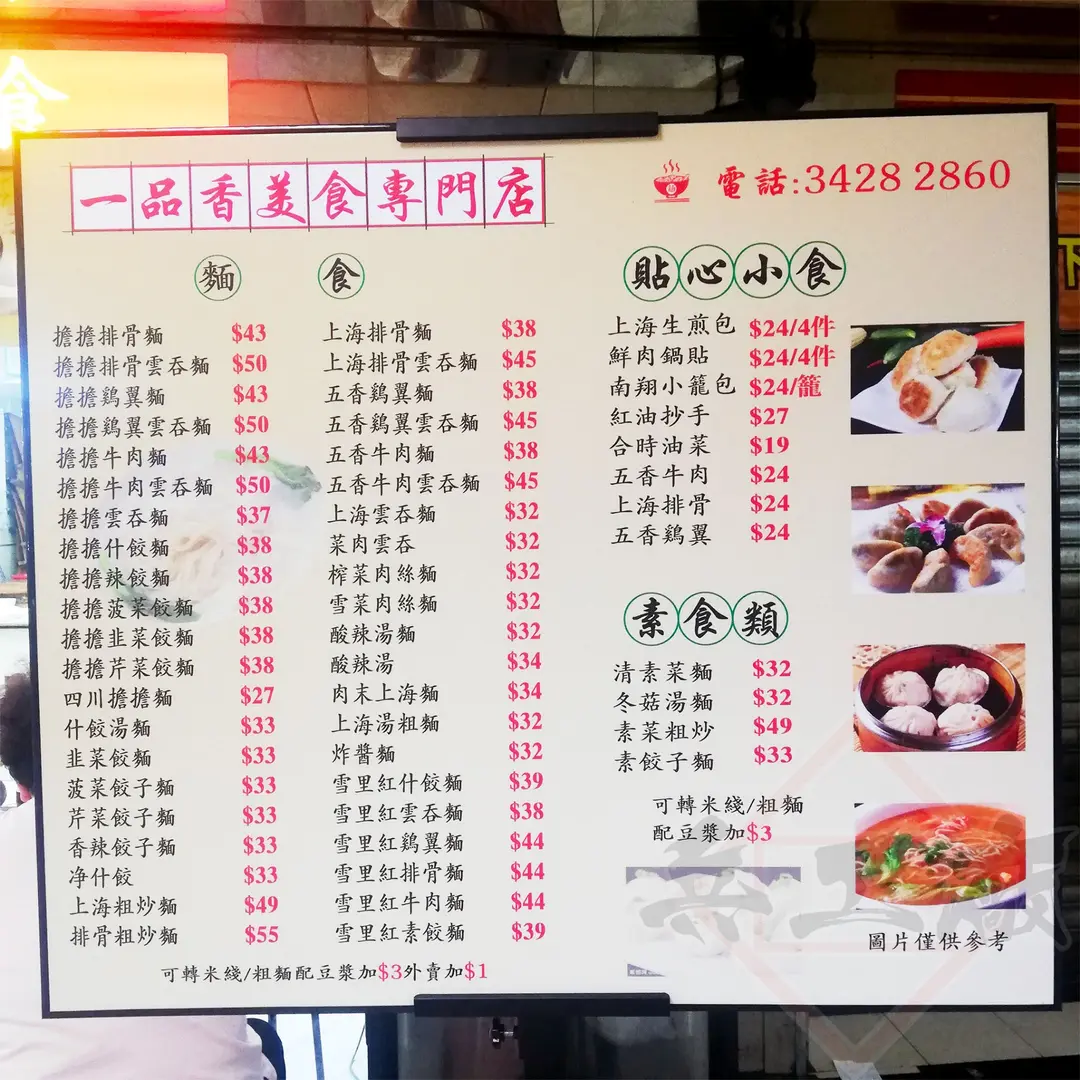 食
一品香美食專門店
電話:3428 2860
麵食
擔擔排骨麵 $43
擔擔排骨雲吞麵 $50
擔擔鷄翼麵 $43
擔擔鷄翼雲吞麵 $50
擔擔牛肉麵 $43
擔擔牛肉雲吞麵 $50
擔擔雲吞麵 $37
擔擔什餃麵 $38
擔擔辣餃麵 $38
擔擔菠菜餃麵 $38
擔擔韭菜餃麵 $38
擔擔芹菜餃麵 $38
四川擔擔麵 $27
什餃湯麵 $33
韭菜餃麵 $33
菠菜餃子麵 $33
芹菜餃子麵 $33
香辣餃子麵 $33
净什餃 $33
上海粗炒麵 $49
排骨粗炒麵 $55
上海排骨麵 $38
上海排骨雲吞麵 $45
五香鷄翼麵 $38
五香鷄翼雲吞麵 $45
五香牛肉麵 $38
五香牛肉雲吞麵 $45
上海雲吞麵 $32
菜肉雲吞 $32
榨菜肉絲麵 $32
雪菜肉絲麵 $32
酸辣湯麵 $32
酸辣湯 $34
肉末上海麵 $34
上海湯粗麵 $32
炸醬麵 $32
雪里紅什餃麵 $39
雪里紅雲吞麵 $38
雪里紅鷄翼麵 $44
雪里紅排骨麵 $44
雪里紅牛肉麵 $44
雪里紅素餃麵 $39
可轉米綫/粗麵配豆漿加$3外賣加$1
貼心小食
上海生煎包 $24/4件
鮮肉鍋貼 $24/4件
南翔小籠包 $24/籠
紅油抄手 $27
合時油菜 $19
五香牛肉 $24
上海排骨 $24
五香鷄翼 $24
素食類
清素菜麵 $32
冬菇湯麵 $32
素菜粗炒 $49
素餃子麵 $33
可轉米綫/粗麵
配豆漿加$3
圖片僅供參考
下